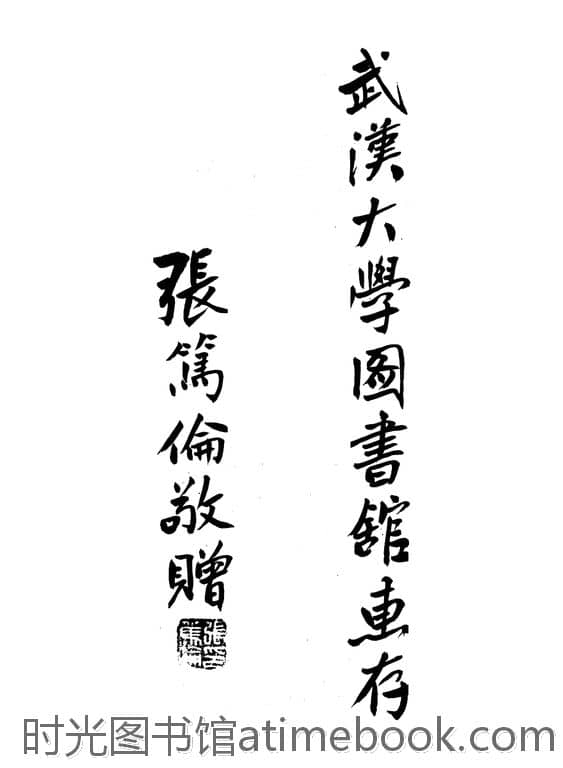 武漢大學图書舘惠存
張篤倫敬贈
时光图书馆atimebook.com